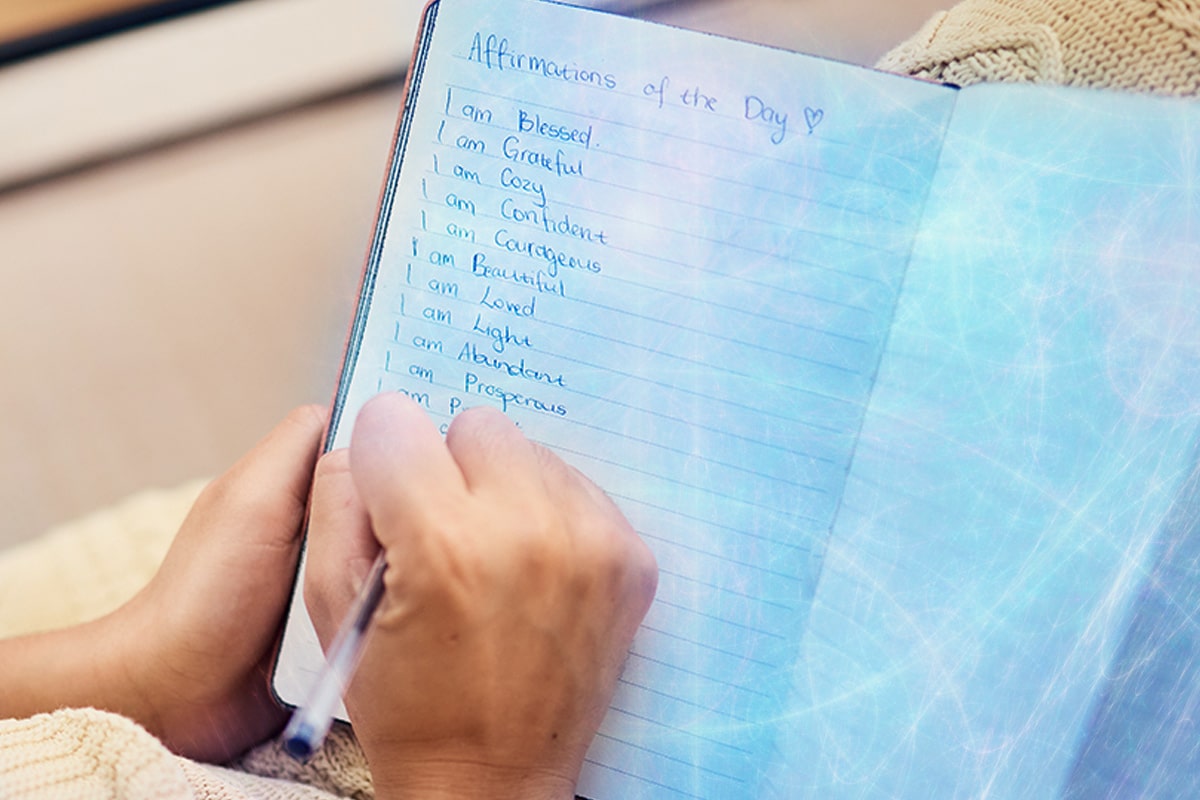 Affirmations of the Day ♡
I am Blessed.
I am Grateful
I am Cozy
I am Confident
I am Courageous
I am Beautiful
I am Loved
I am Light
I am Abundant
I am Prosperous
I am